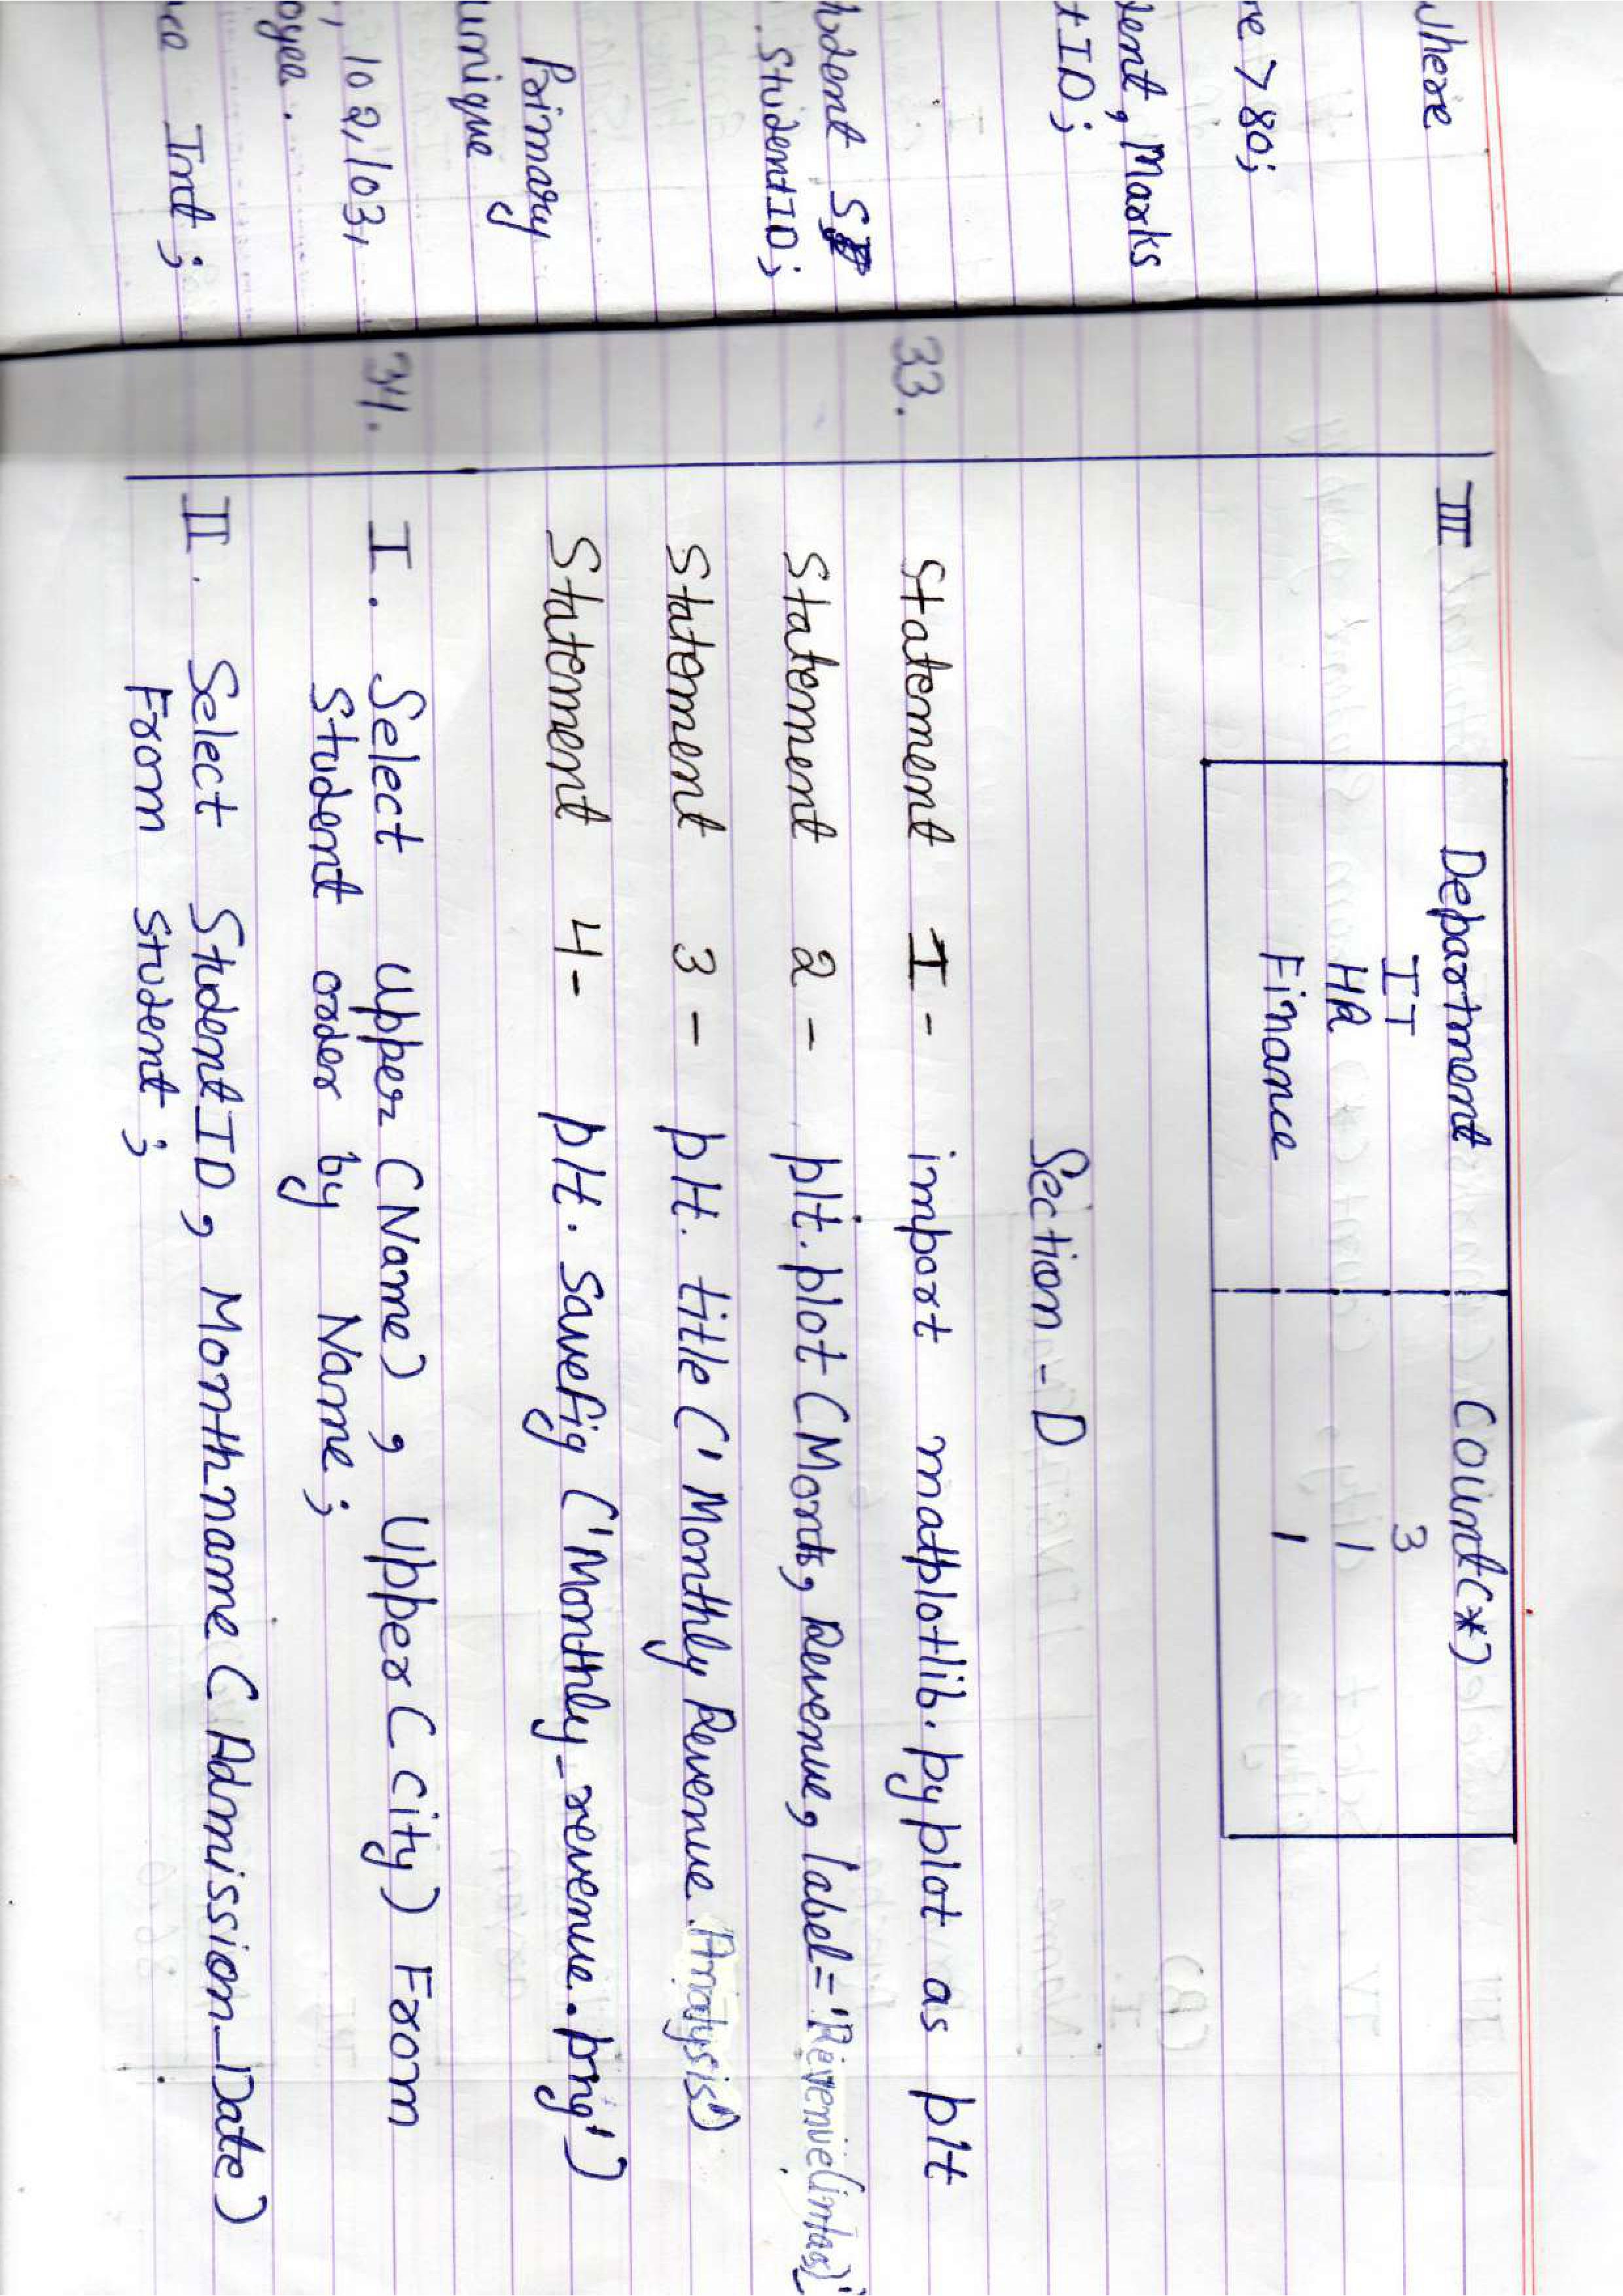 where
re > 80;
dent, Marks
tID;
udent S
. StudentID;
Primary
unique
, 102, 103,
oyee.
Int ;
III Department Count(*)
IT 3
HR 1
Finance 1
Section - D
33. Statement I - import matplotlib.pyplot as plt
Statement 2 - plt.plot (Month, Revenue, label='Revenue(inlacs)'
Statement 3 - plt. title (' Monthly Revenue Analysis')
Statement 4- plt. Savefig ('Monthly_revenue.png')
34. I. Select Upper (Name) , Upper ( City) From
Student order by Name;
II. Select StudentID, Monthname ( Admission_Date)
From Student ;